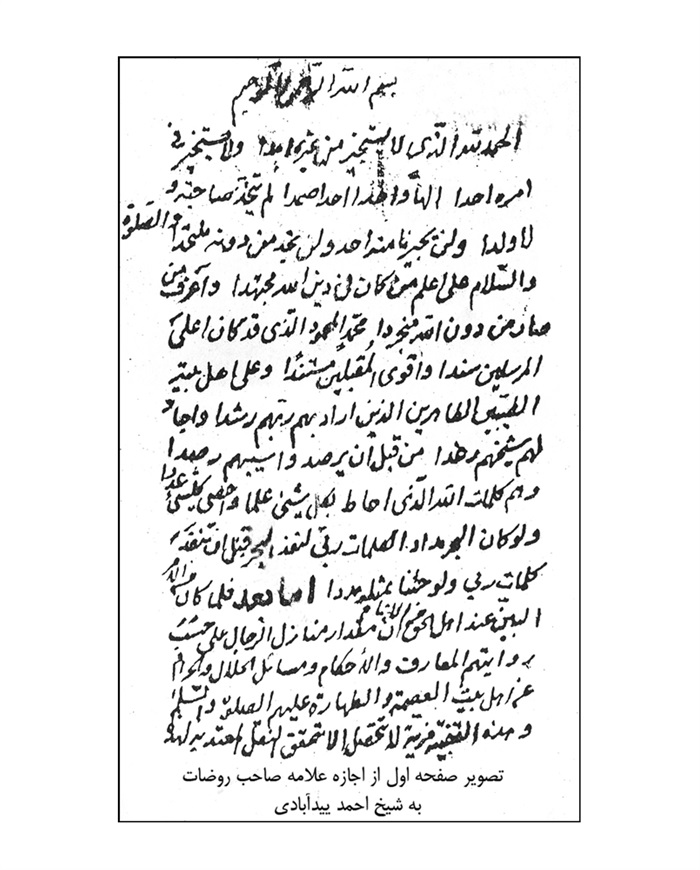 بسم الله الرحمن الرحیم
الحمد لله الذی لا یستجیز من غیره ابدا ولا یستجیر فی
امره احدا الها واحدا احدا صمدا لم یتخذ صاحبة و
لا ولدا ولن یجیرنا منه احد ولن نجد من دونه ملتحدا والصلوة
والسلام علی اعلم من کان فی دین الله مجتهدا واعرف من
صار من دون الله منفردا محمد المحمود الذی قد کان اعلی
المرسلین سندا واقوی المقبلین مستندا وعلی اهل بیته
الطیبین الطاهرین الذین اراد بهم ربهم رشدا
لهم من قبل ان یرصد رصدا
وهم کلمات الله الذی احاط بکل شیئ علما واحصی کلشیئ عددا
ولو کان البحر مدادا لکلمات ربی لنفد البحر قبل ان تنفد
کلمات ربی ولو جئنا بمثله مددا اما بعد فلما کان من الامر
البین عند اهل الحق ان مقدار منازل الرجال علی حسب
روایتهم المعارف والاحکام ومسائل الحلال والحرام
عن اهل بیت العصمة والطهارة علیهم الصلوة والسلام
وهذه القضیة لا تحصل الا بتحقق النقل المعتد به لهذه
تصویر صفحه اول از اجازه علامه صاحب روضات
به شیخ احمد بیدآبادی